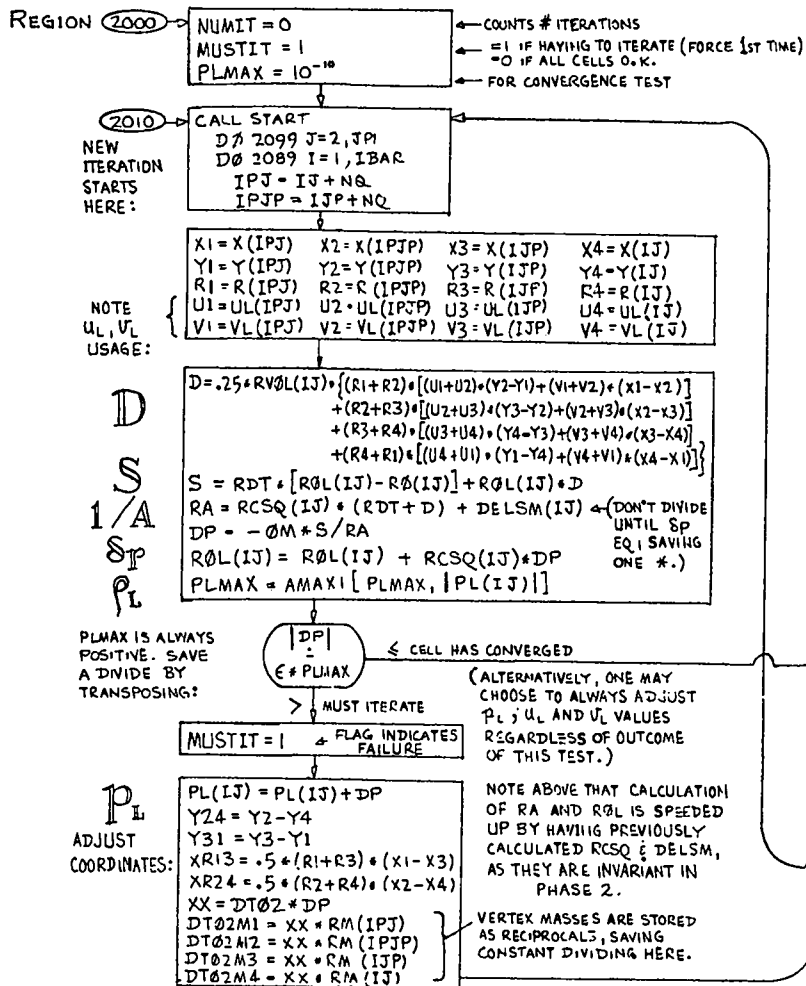 REGION 2000
NUMIT = 0
MUSTIT = 1
PLMAX = 10⁻¹⁰
COUNTS # ITERATIONS
=1 IF HAVING TO ITERATE (FORCE 1ST TIME)
=0 IF ALL CELLS O.K.
FOR CONVERGENCE TEST
2010
NEW
ITERATION
STARTS
HERE:
CALL START
DØ 2099 J=2,JP1
DØ 2089 I=1,IBAR
IPJ = IJ+NQ
IPJP = IJP+NQ
NOTE
UL, VL
USAGE:
X1=X(IPJ) X2=X(IPJP) X3=X(IJP) X4=X(IJ)
Y1=Y(IPJ) Y2=Y(IPJP) Y3=Y(IJP) Y4=Y(IJ)
R1=R(IPJ) R2=R(IPJP) R3=R(IJP) R4=R(IJ)
U1=UL(IPJ) U2=UL(IPJP) U3=UL(IJP) U4=UL(IJ)
V1=VL(IPJ) V2=VL(IPJP) V3=VL(IJP) V4=VL(IJ)
D
D=.25*RVØL(IJ)*{(R1+R2)*[(U1+U2)*(Y2-Y1)+(V1+V2)*(X1-X2)]
+(R2+R3)*[(U2+U3)*(Y3-Y2)+(V2+V3)*(X2-X3)]
+(R3+R4)*[(U3+U4)*(Y4-Y3)+(V3+V4)*(X3-X4)]
+(R4+R1)*[(U4+U1)*(Y1-Y4)+(V4+V1)*(X4-X1)]}
S
S = RDT*[RØL(IJ)-RØ(IJ)]+RØL(IJ)*D
1/A
RA = RCSQ(IJ)*(RDT+D)+DELSM(IJ)
(DON'T DIVIDE
UNTIL δp
EQ; SAVING
ONE *.)
δp
DP = -ØM*S/RA
ρL
RØL(IJ)=RØL(IJ)+RCSQ(IJ)*DP
PLMAX = AMAX1[PLMAX,|PL(IJ)|]
PLMAX IS ALWAYS
POSITIVE. SAVE
A DIVIDE BY
TRANSPOSING:
|DP|
:
ε*PLMAX
≤ CELL HAS CONVERGED
> MUST ITERATE
(ALTERNATIVELY, ONE MAY
CHOOSE TO ALWAYS ADJUST
pL; uL AND vL VALUES
REGARDLESS OF OUTCOME
OF THIS TEST.)
MUSTIT=1 FLAG INDICATES
FAILURE
pL
ADJUST
COORDINATES:
PL(IJ)=PL(IJ)+DP
Y24=Y2-Y4
Y31=Y3-Y1
XR13=.5*(R1+R3)*(X1-X3)
XR24=.5*(R2+R4)*(X2-X4)
XX=DTO2*DP
DTO2M1=XX*RM(IPJ)
DTO2M2=XX*RM(IPJP)
DTO2M3=XX*RM(IJP)
DTO2M4=XX*RM(IJ)
NOTE ABOVE THAT CALCULATION
OF RA AND RØL IS SPEEDED
UP BY HAVING PREVIOUSLY
CALCULATED RCSQ & DELSM,
AS THEY ARE INVARIANT IN
PHASE 2.
VERTEX MASSES ARE STORED
AS RECIPROCALS, SAVING
CONSTANT DIVIDING HERE.